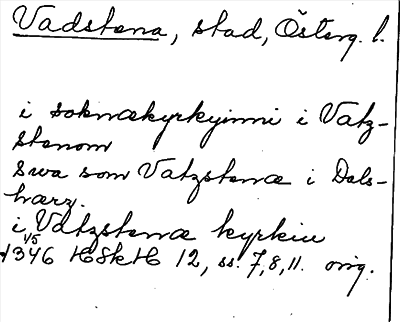 Vadstena, stad, Österg. l.
i soknækyrkyinni i Vatz-
stenom
Swa som Vatzstenæ i Dals-
hærz.
i Vatzstenæ kyrkiu
1346 1/5 HSkH 12, ss. 7, 8, 11. orig.